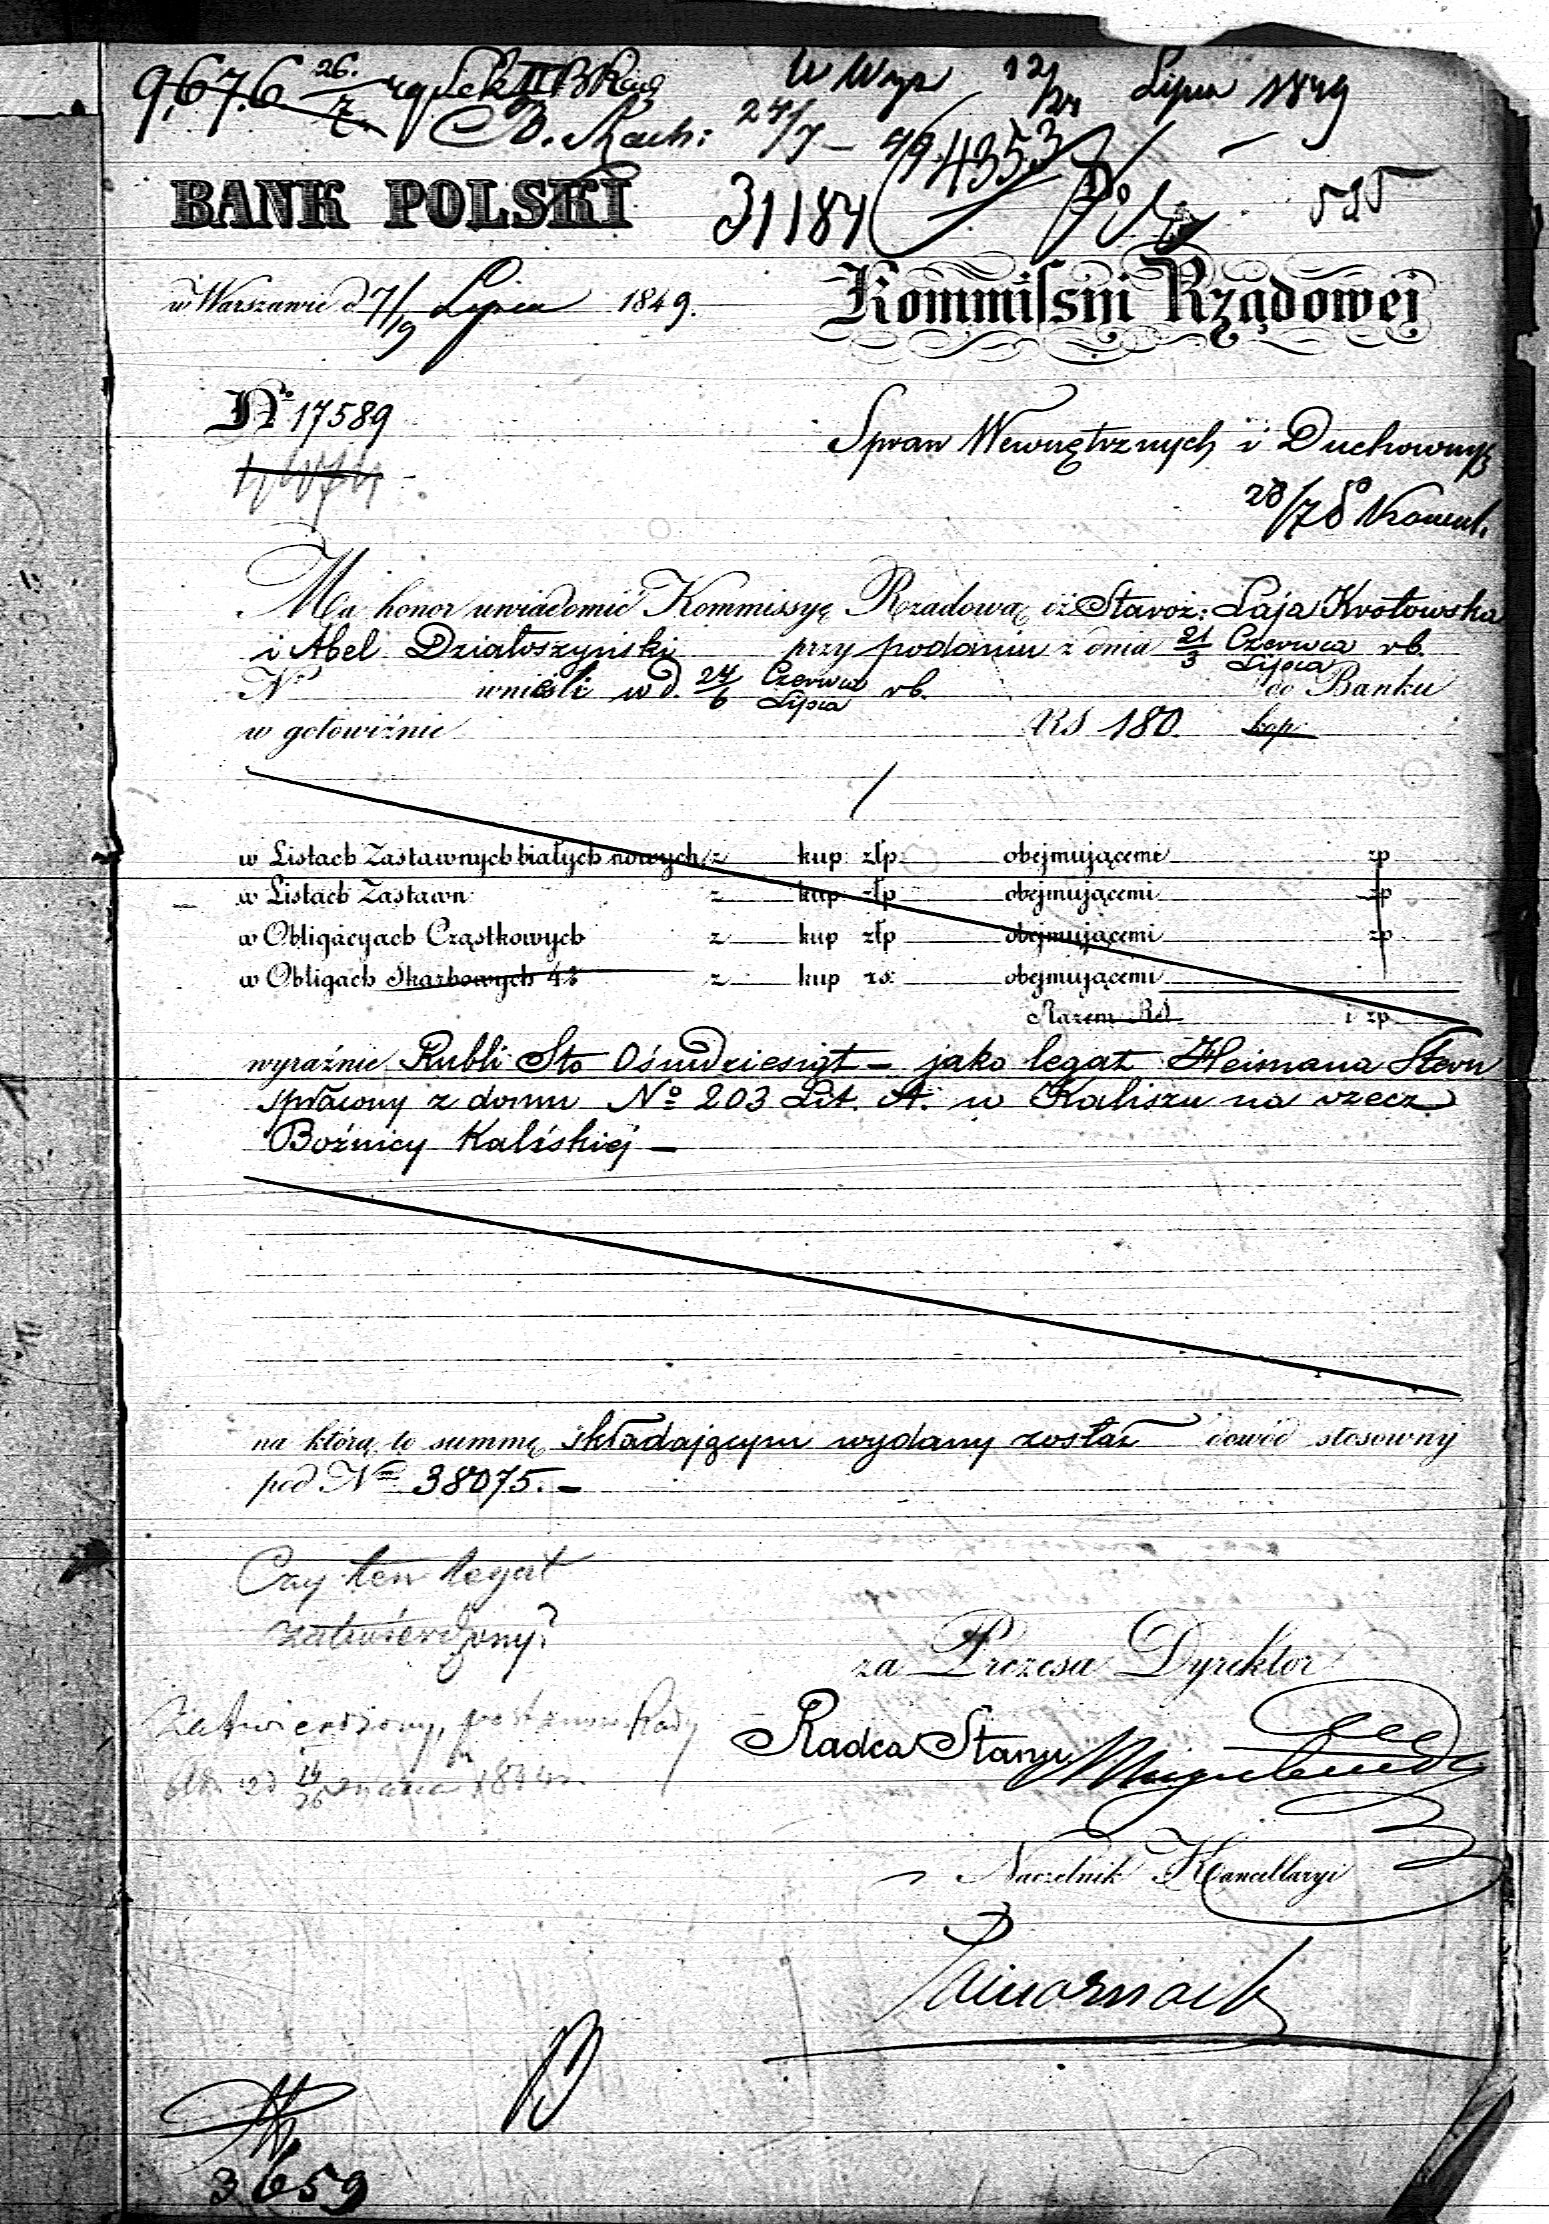 9,676 26/7
W Wyp 12/24 Lipca 1849
B. Rach: 24/7 - 49
4353
BANK POLSKI
31184
525
w Warszawie d 7/19 Lipca 1849.
Kommissyi Rządowej
No 17589
Spraw Wewnętrznych i Duchownych
28/7
Ma honor uwiadomić Kommissyę Rządową, iż Staroz: Laja Krotowska
i Abel Działoszyński przy podaniu z dnia 21/3 Czerwca/Lipca rb.
No wnieśli w d. 24/6 Czerwca/Lipca rb. do Banku
w gotowiźnie RS 180. kop
w Listach Zastawnych białych nowych z kup złp. obejmującemi zp
w Listach Zastawn z kup złp obejmującemi zp
w Obligacyach Cząstkowych z kup złp obejmującemi zp
w Obligach Skarbowych 4% z kup rs. obejmującemi
Razem RS i zp
wyraźnie Rubli Sto Ośmdziesiąt - jako legat Heimana Stern
spłacony z domu No 203 Lit. A. w Kaliszu na rzecz
Bożnicy Kaliskiéj -
na którą to summę składającym wydany został dowód stosowny
pod No 38075. -
Czy ten legat
zatwierdzony?
Zatwierdzony, postanow. Rady
za Prezesa Dyrektor
Radca Stanu
Naczelnik Kancellaryi
3659